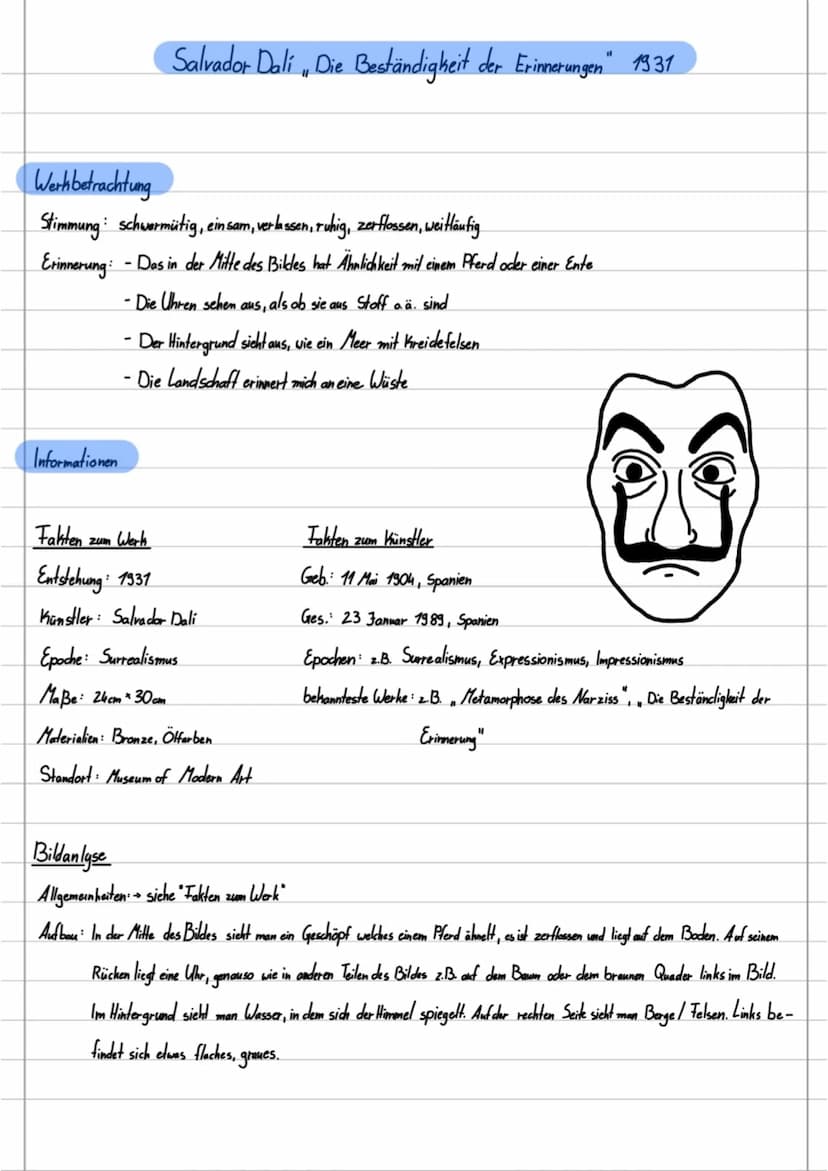 Salvador Dalí „Die Beständigkeit der Erinnerungen" 1931
Werkbetrachtung
Stimmung: schwermütig, einsam, verlassen, ruhig, zerflossen, weitläufig
Erinnerung: - Das in der Mitte des Bildes hat Ähnlichkeit mit einem Pferd oder einer Ente
- Die Uhren sehen aus, als ob sie aus Stoff o.ä. sind
- Der Hintergrund sieht aus, wie ein Meer mit Kreidefelsen
- Die Landschaft erinnert mich an eine Wüste
Informationen
Fakten zum Werk
Entstehung: 1931
Künstler: Salvador Dalí
Epoche: Surrealismus
Maße: 24cm x 30cm
Materialien: Bronze, Ölfarben
Standort: Museum of Modern Art
Fakten zum Künstler
Geb.: 11 Mai 1904, Spanien
Ges.: 23 Januar 1989, Spanien
Epochen: z.B. Surrealismus, Expressionismus, Impressionismus
bekannteste Werke: z.B. „Metamorphose des Narziss", „Die Beständigkeit der
Erinnerung"
Bildanlyse
Allgemeinheiten: → siehe "Fakten zum Werk"
Aufbau: In der Mitte des Bildes sieht man ein Geschöpf welches einem Pferd ähnelt, es ist zerflossen und liegt auf dem Boden. Auf seinem
Rücken liegt eine Uhr, genauso wie in anderen Teilen des Bildes z.B. auf dem Baum oder dem braunen Quader links im Bild.
Im Hintergrund sieht man Wasser, in dem sich der Himmel spiegelt. Auf der rechten Seite sieht man Berge/Felsen. Links be-
findet sich etwas flaches, graues.